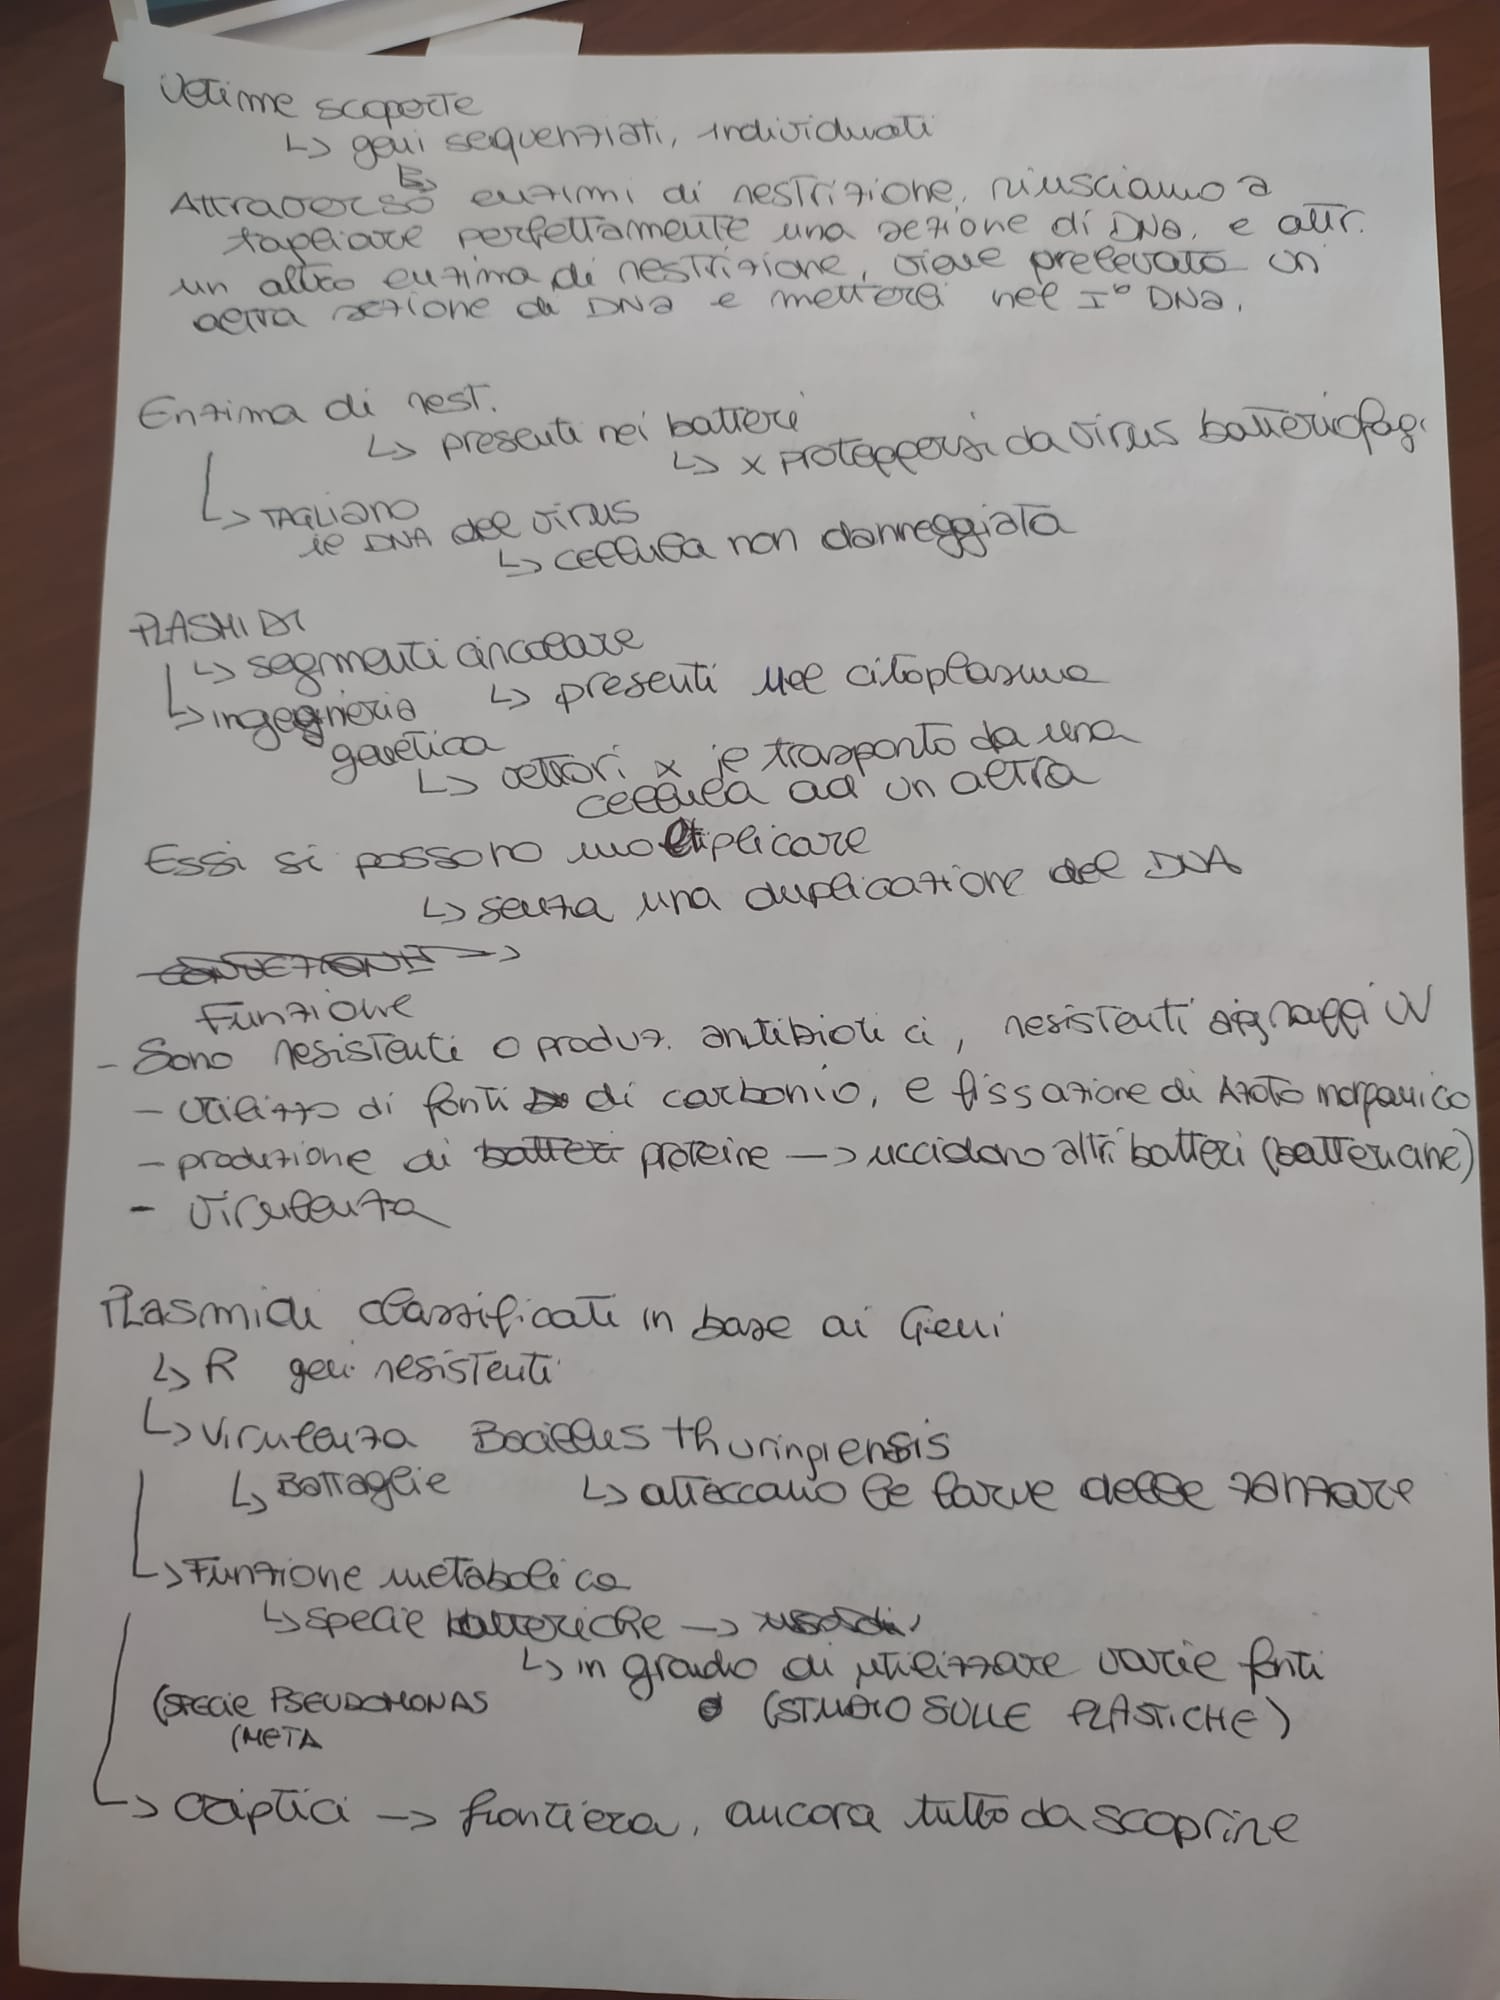 Ultime scoperte
↳ geni sequenziati, individuati
↳
Attraverso enzimi di restrizione, riusciamo a
tagliare perfettamente una sezione di DNA, e attr.
un altro enzima di restrizione, viene prelevato un
altra sezione di DNA e metterei nel I° DNA.
Enzima di rest.
↳ presenti nei batteri
↳ x proteggersi da virus batteriofagi
↳ TAGLIANO
il DNA del virus
↳ cellula non danneggiata
PLASMIDI
↳ segmenti circolare
↳ presenti nel citoplasma
↳ ingegneria
genetica
↳ vettori x il trasporto da una
cellula ad un altra
Essi si possono moltiplicare
↳ senza una duplicazione del DNA
→
Funzione
- Sono resistenti o produz. antibiotici, resistenti raggi UV
- utilizzo di fonti di carbonio, e fissazione di Azoto inorganico
- produzione di batteri proteine → uccidono altri batteri (batteriane)
- virulenza
Plasmidi classificati in base ai Geni
↳ R geni resistenti
↳ virulenza Bacillus thuringiensis
↳ Battaglie ↳ attaccano le larve delle zanzare
↳ Funzione metabolica
↳ specie batteriche →
↳ in grado di utilizzare varie fonti
(SPECIE PSEUDOMONAS (STUDIO SULLE PLASTICHE)
(META
↳ criptici → frontiera, ancora tutto da scoprire